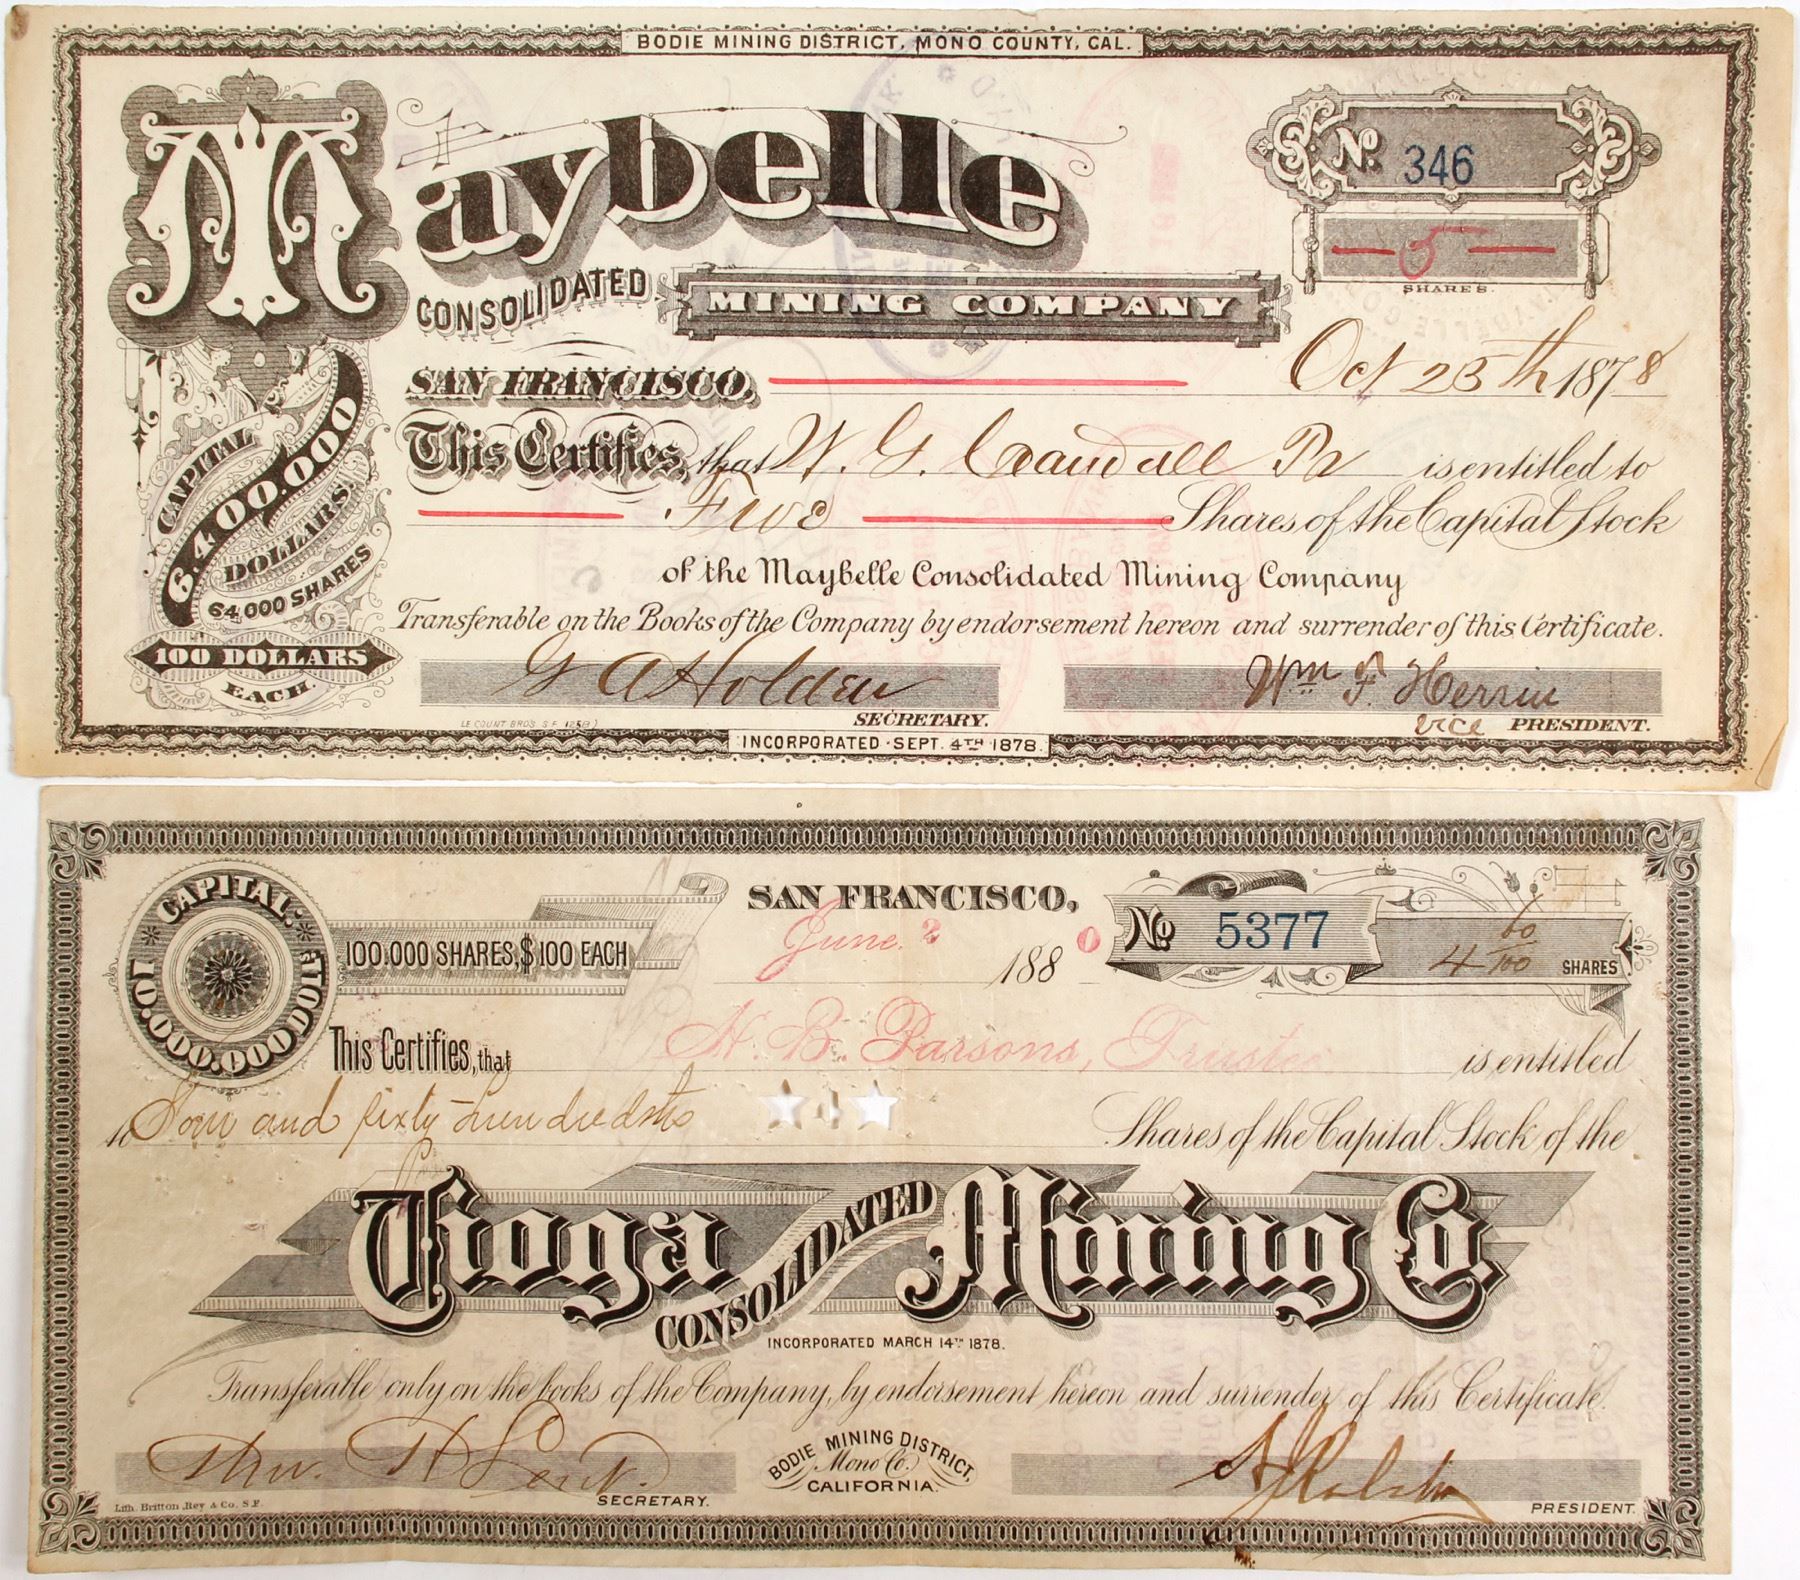 BODIE MINING DISTRICT, MONO COUNTY, CAL.
Maybelle
No. 346
5
SHARES.
CONSOLIDATED MINING COMPANY
SAN FRANCISCO, Oct 25th 1878
This Certifies, that W. G. Crandall Tr is entitled to
Five Shares of the Capital Stock
of the Maybelle Consolidated Mining Company
Transferable on the Books of the Company by endorsement hereon and surrender of this Certificate.
CAPITAL
6.400.000
DOLLARS.
64,000 SHARES
100 DOLLARS
EACH.
G A Holden
SECRETARY.
Wm F. Herrin
vice PRESIDENT.
LE COUNT BROS. S.F.
INCORPORATED SEPT. 4TH 1878.
CAPITAL
10.000.000 DOLL
100.000 SHARES, $100 EACH
SAN FRANCISCO,
June 2 1880
No 5377
4 60/100 SHARES
This Certifies, that H. B. Parsons, Trustee is entitled
to Four and sixty hundredths Shares of the Capital Stock of the
Tioga CONSOLIDATED Mining Co
INCORPORATED MARCH 14TH 1878.
Transferable only on the books of the Company, by endorsement hereon and surrender of this Certificate.
SECRETARY.
BODIE MINING DISTRICT,
Mono Co.
CALIFORNIA.
PRESIDENT.
Lith. Britton, Rey & Co. S.F.